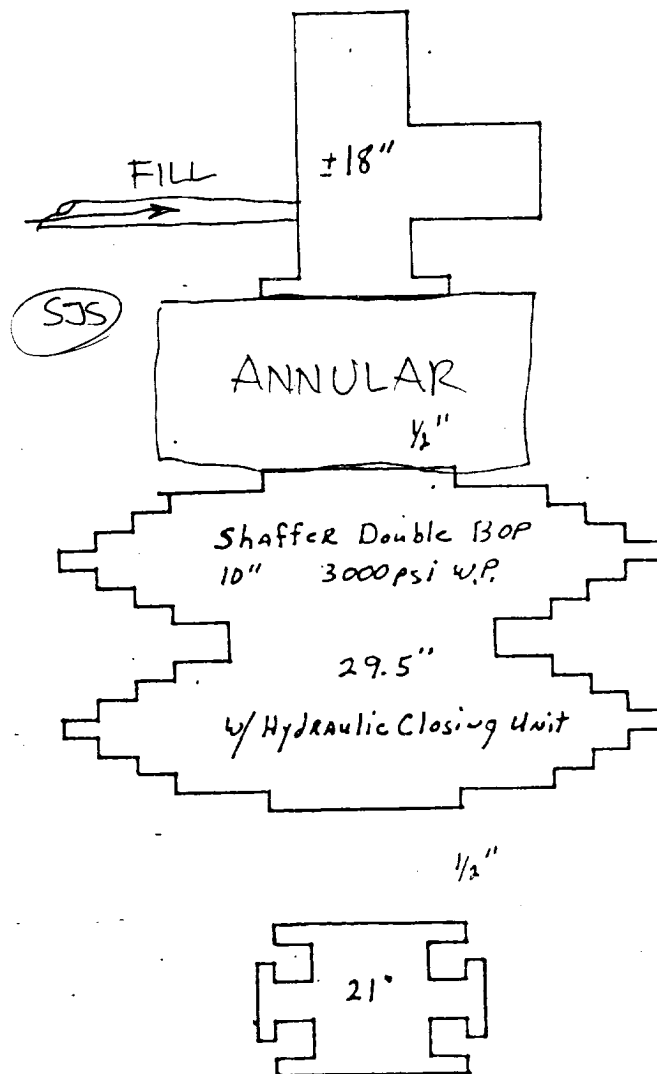 ±18"
FILL
SJS
ANNULAR
1/2"
Shaffer Double BOP
10" 3000 psi W.P.
29.5"
w/ Hydraulic Closing Unit
1/2"
21"